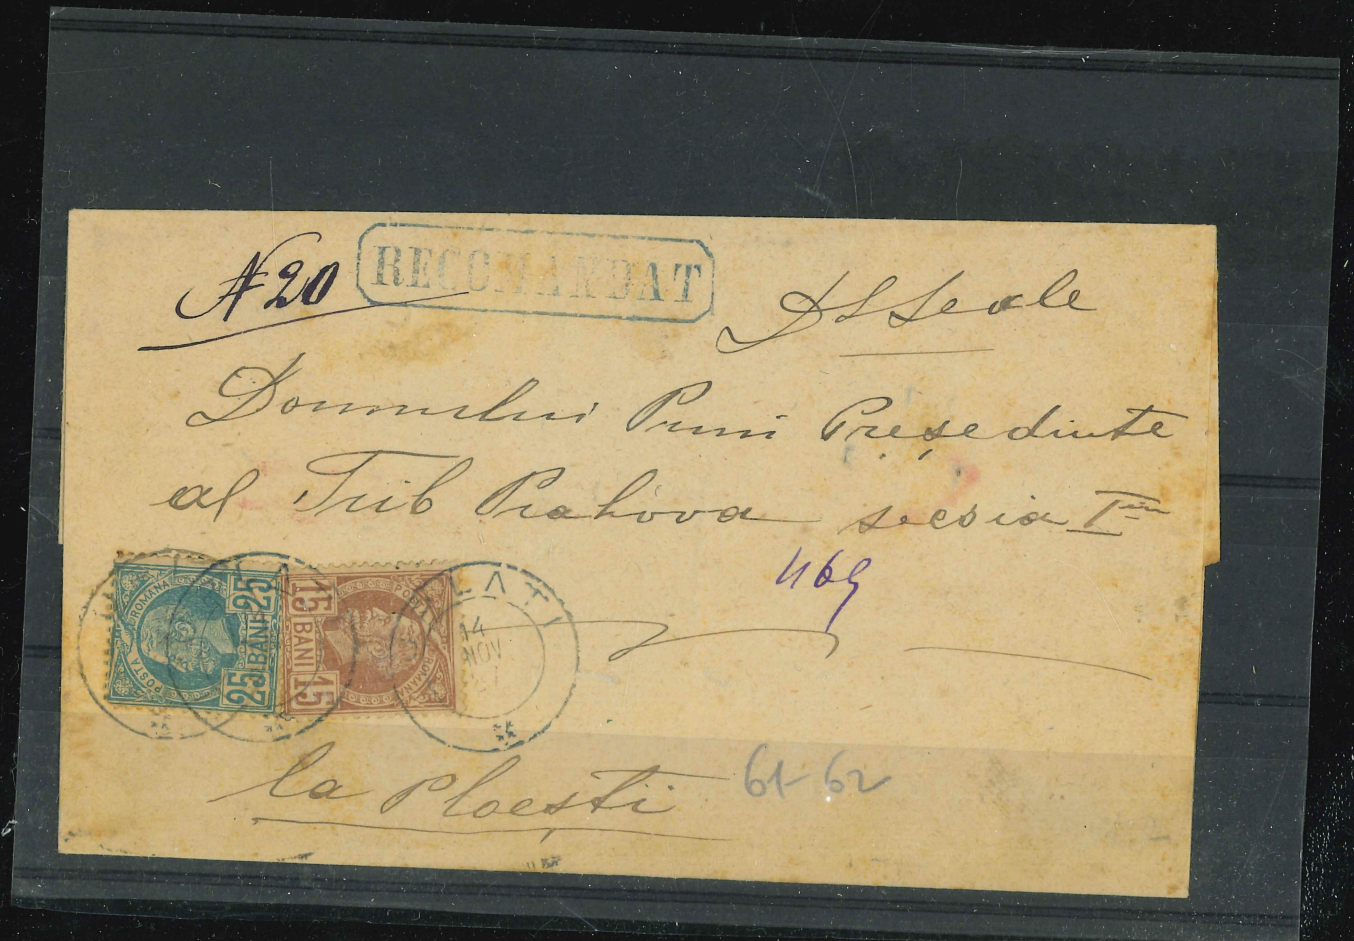 N 20 RECOMANDAT
DSSeale
Domnului Prim Președinte
al Trib Prahova secsia I
469
POSTA ROMANA 25 BANI 25
15 BANI 15 ROMANA
14
NOV
la Ploești
61-62